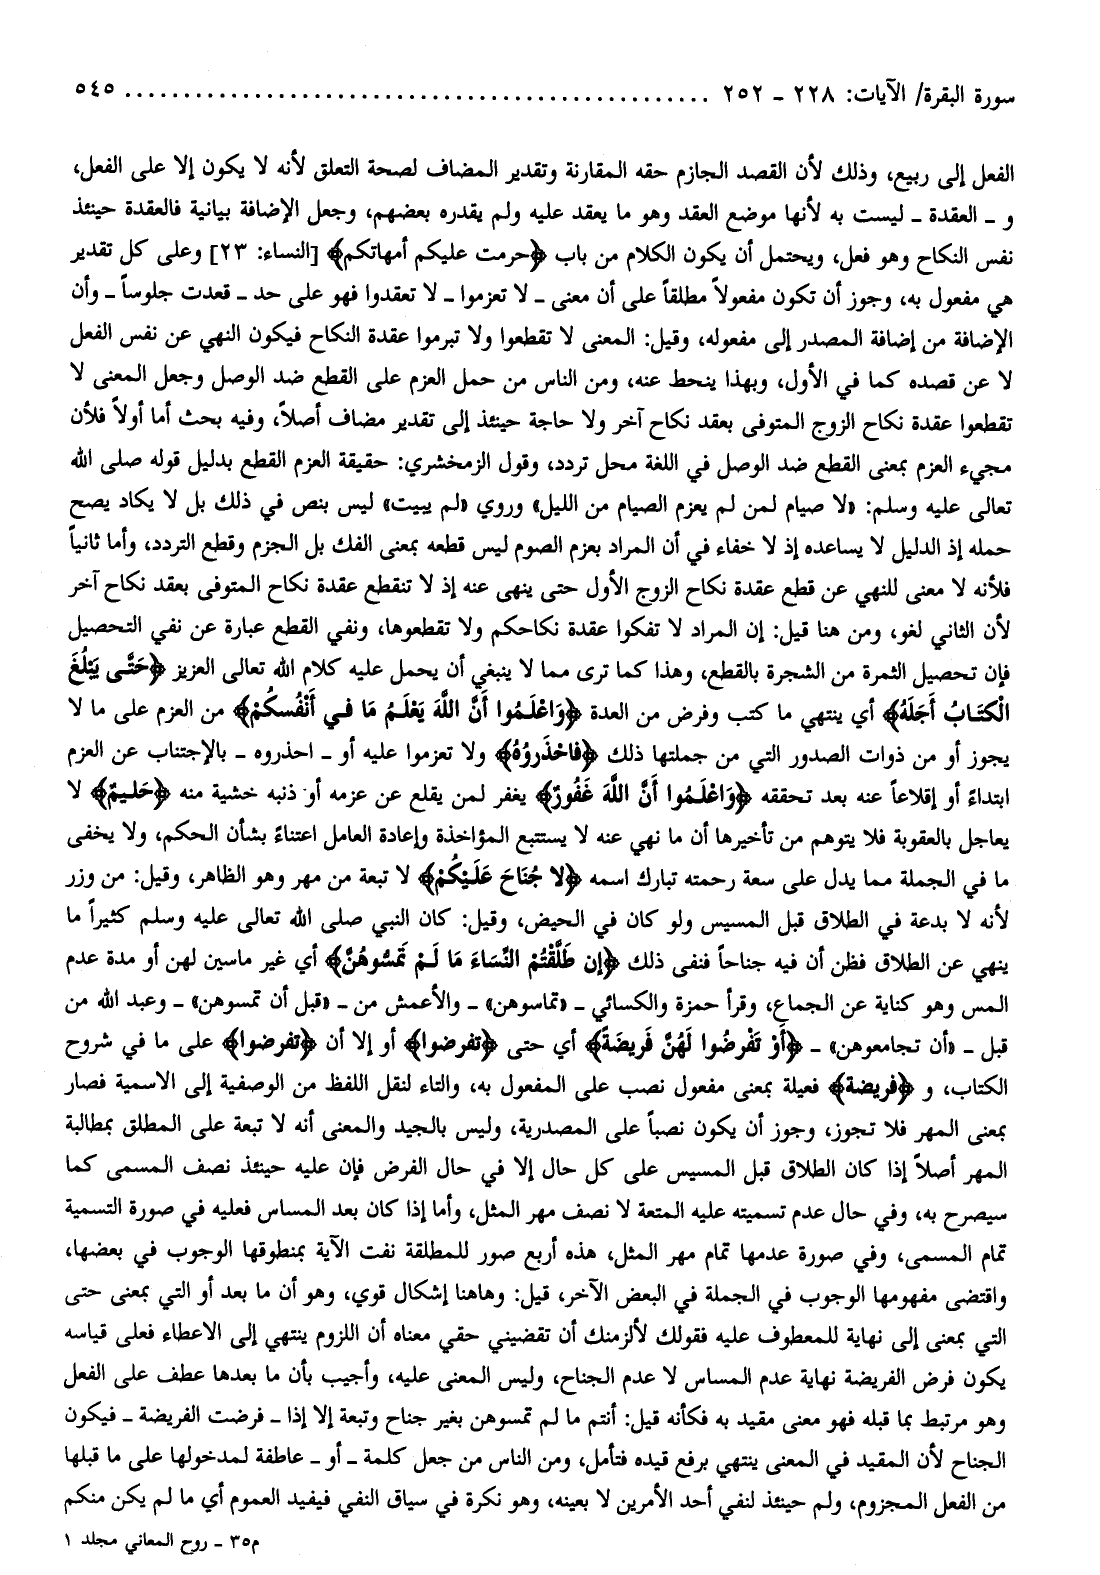 سورة البقرة/ الآيات: ٢٢٨ ـ ٢٥٢ .................................................. ٥٤٥
الفعل إلى ربيع، وذلك لأن القصد الجازم حقه المقارنة وتقدير المضاف لصحة التعلق لأنه لا يكون إلا على الفعل،
و ـ العقدة ـ ليست به لأنها موضع العقد وهو ما يعقد عليه ولم يقدره بعضهم، وجعل الإضافة بيانية فالعقدة حينئذ
نفس النكاح وهو فعل، ويحتمل أن يكون الكلام من باب ﴿حرمت عليكم أمهاتكم﴾ [النساء: ٢٣] وعلى كل تقدير
هي مفعول به، وجوز أن تكون مفعولاً مطلقاً على أن معنى ـ لا تعزموا ـ لا تعقدوا فهو على حد ـ قعدت جلوساً ـ وأن
الإضافة من إضافة المصدر إلى مفعوله، وقيل: المعنى لا تقطعوا ولا تبرموا عقدة النكاح فيكون النهي عن نفس الفعل
لا عن قصده كما في الأول، وبهذا ينحط عنه، ومن الناس من حمل العزم على القطع ضد الوصل وجعل المعنى لا
تقطعوا عقدة نكاح الزوج المتوفى بعقد نكاح آخر ولا حاجة حينئذ إلى تقدير مضاف أصلاً، وفيه بحث أما أولاً فلأن
مجيء العزم بمعنى القطع ضد الوصل في اللغة محل تردد، وقول الزمخشري: حقيقة العزم القطع بدليل قوله صلى الله
تعالى عليه وسلم: «لا صيام لمن لم يعزم الصيام من الليل» وروي «لم يبيت» ليس بنص في ذلك بل لا يكاد يصح
حمله إذ الدليل لا يساعده إذ لا خفاء في أن المراد بعزم الصوم ليس قطعه بمعنى الفك بل الجزم وقطع التردد، وأما ثانياً
فلأنه لا معنى للنهي عن قطع عقدة نكاح الزوج الأول حتى ينهى عنه إذ لا تنقطع عقدة نكاح المتوفى بعقد نكاح آخر
لأن الثاني لغو، ومن هنا قيل: إن المراد لا تفكوا عقدة نكاحكم ولا تقطعوها، ونفي القطع عبارة عن نفي التحصيل
فإن تحصيل الثمرة من الشجرة بالقطع، وهذا كما ترى مما لا ينبغي أن يحمل عليه كلام الله تعالى العزيز ﴿حَتَّى يَبْلُغَ
الْكتَابُ أَجَلَهُ﴾ أي ينتهي ما كتب وفرض من العدة ﴿وَاعْلَمُوا أَنَّ اللَّهَ يَعْلَمُ مَا في أَنْفُسكُمْ﴾ من العزم على ما لا
يجوز أو من ذوات الصدور التي من جملتها ذلك ﴿فَاحْذَرُوُهُ﴾ ولا تعزموا عليه أو ـ احذروه ـ بالإجتناب عن العزم
ابتداءً أو إقلاعاً عنه بعد تحققه ﴿وَاعْلَمُوا أَنَّ اللَّهَ غَفُورٌ﴾ يغفر لمن يقلع عن عزمه أو ذنبه خشية منه ﴿حَليمٌ﴾ لا
يعاجل بالعقوبة فلا يتوهم من تأخيرها أن ما نهي عنه لا يستتبع المؤاخذة وإعادة العامل اعتناءً بشأن الحكم، ولا يخفى
ما في الجملة مما يدل على سعة رحمته تبارك اسمه ﴿لا جُنَاحَ عَلَيْكُمْ﴾ لا تبعة من مهر وهو الظاهر، وقيل: من وزر
لأنه لا بدعة في الطلاق قبل المسيس ولو كان في الحيض، وقيل: كان النبي صلى الله تعالى عليه وسلم كثيراً ما
ينهي عن الطلاق فظن أن فيه جناحاً فنفى ذلك ﴿إن طَلَّقْتُمْ النِّسَاءَ مَا لَمْ تَمَسُّوهُنَّ﴾ أي غير ماسين لهن أو مدة عدم
المس وهو كناية عن الجماع، وقرأ حمزة والكسائي ـ «تماسوهن» ـ والأعمش من ـ «قبل أن تمسوهن» ـ وعبد الله من
قبل ـ «أن تجامعوهن» ـ ﴿أَوْ تَفْرضُوا لَهُنَّ فَريضَةً﴾ أي حتى ﴿تفرضوا﴾ أو إلا أن ﴿تفرضوا﴾ على ما في شروح
الكتاب، و ﴿فريضة﴾ فعيلة بمعنى مفعول نصب على المفعول به، والتاء لنقل اللفظ من الوصفية إلى الاسمية فصار
بمعنى المهر فلا تجوز، وجوز أن يكون نصباً على المصدرية، وليس بالجيد والمعنى أنه لا تبعة على المطلق بمطالبة
المهر أصلاً إذا كان الطلاق قبل المسيس على كل حال إلا في حال الفرض فإن عليه حينئذ نصف المسمى كما
سيصرح به، وفي حال عدم تسميته عليه المتعة لا نصف مهر المثل، وأما إذا كان بعد المساس فعليه في صورة التسمية
تمام المسمى، وفي صورة عدمها تمام مهر المثل، هذه أربع صور للمطلقة نفت الآية بمنطوقها الوجوب في بعضها،
واقتضى مفهومها الوجوب في الجملة في البعض الآخر، قيل: وهاهنا إشكال قوي، وهو أن ما بعد أو التي بمعنى حتى
التي بمعنى إلى نهاية للمعطوف عليه فقولك لألزمنك أن تقضيني حقي معناه أن اللزوم ينتهي إلى الاعطاء فعلى قياسه
يكون فرض الفريضة نهاية عدم المساس لا عدم الجناح، وليس المعنى عليه، وأجيب بأن ما بعدها عطف على الفعل
وهو مرتبط بما قبله فهو معنى مقيد به فكأنه قيل: أنتم ما لم تمسوهن بغير جناح وتبعة إلا إذا ـ فرضت الفريضة ـ فيكون
الجناح لأن المقيد في المعنى ينتهي برفع قيده فتأمل، ومن الناس من جعل كلمة ـ أو ـ عاطفة لمدخولها على ما قبلها
من الفعل المجزوم، ولم حينئذ لنفي أحد الأمرين لا بعينه، وهو نكرة في سياق النفي فيفيد العموم أي ما لم يكن منكم
م٣٥ ـ روح المعاني مجلد ١